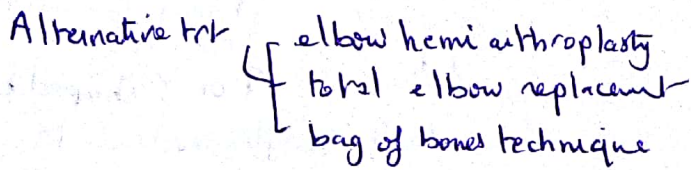 Alternative trt elbow hemi arthroplasty
total elbow replacement
bag of bones technique